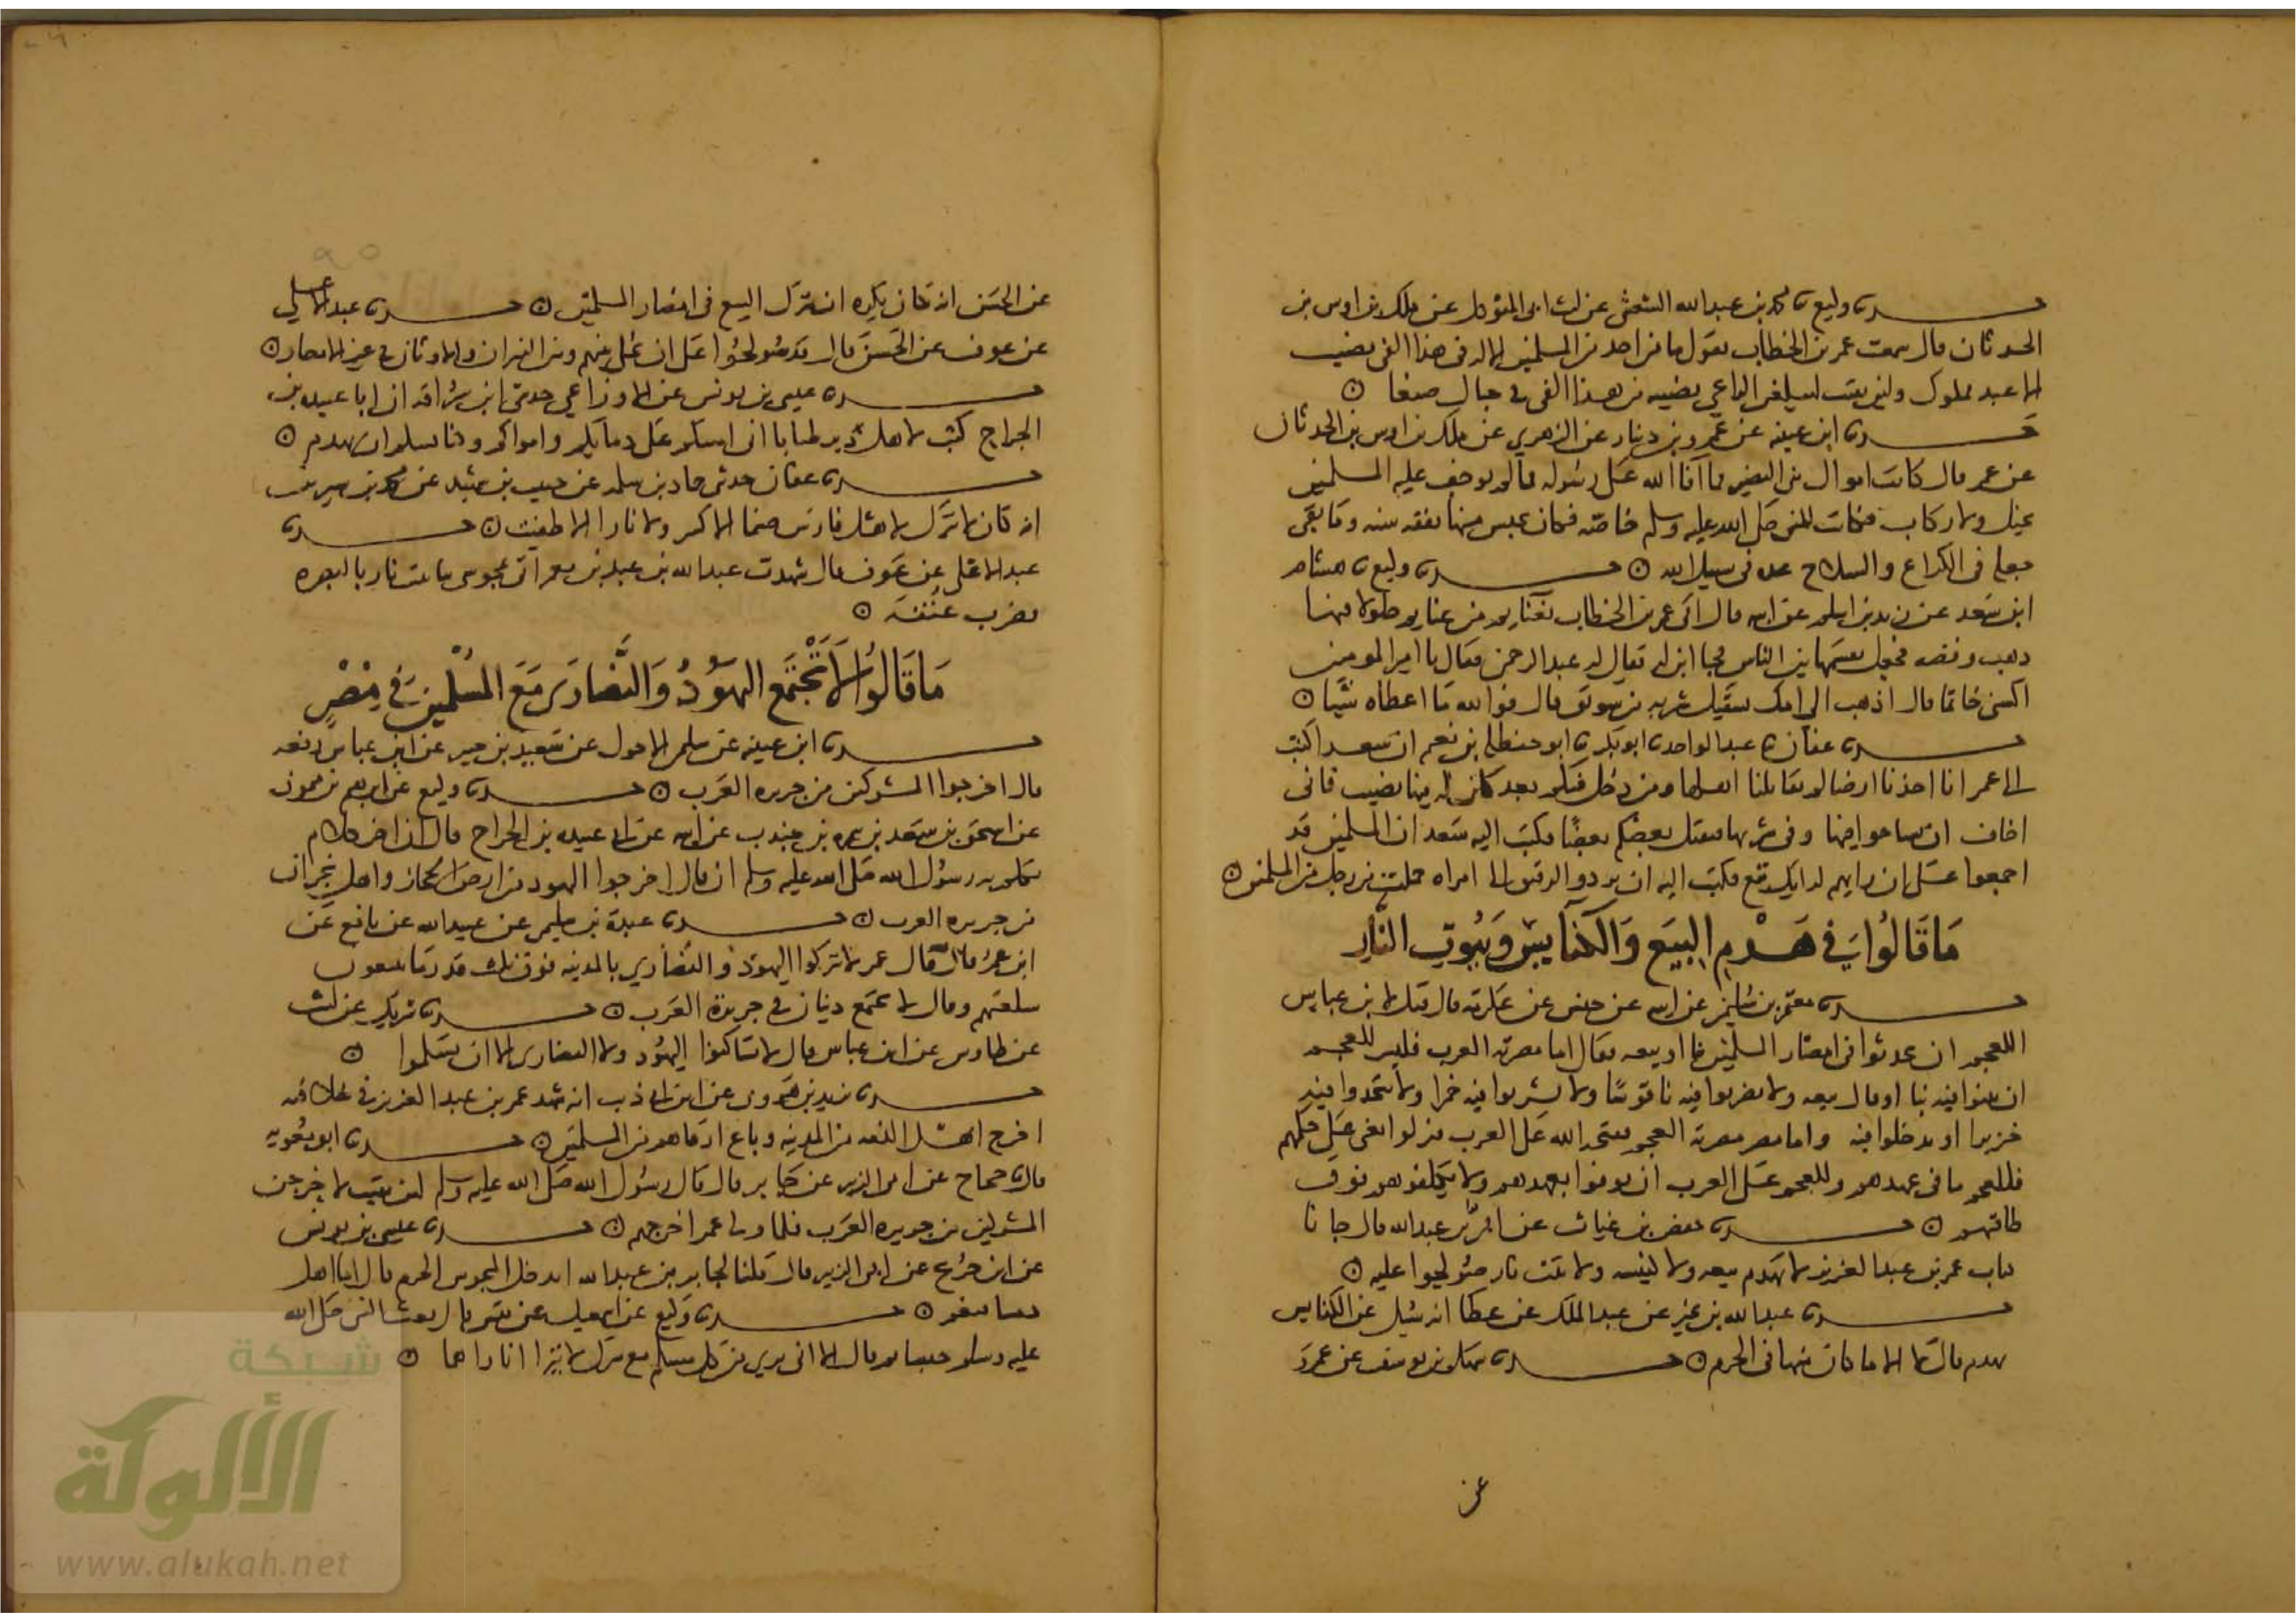 حدثنا وكيع ثنا محمد بن عبد الله الشعيثي عن ليث ابي المتوكل عن ملك بن اوس بن
الحدثان قال سمعت عمر بن الخطاب يقول ما من احد من المسلمين الا له في هذا الفي نصيب
الا عبد مملوك ولين بقيت ليبلغن الراعي نصيبه من هذا الفي في جبال صنعا
حدثنا ابن عيينه عن عمرو بن دينار عن الزهري عن ملك بن اوس بن الحدثان
عن عمر قال كانت اموال بني النضير مما افا الله على رسوله مما لم يوجف عليه المسلمين
بخيل ولا ركاب فكانت للنبي صلى الله عليه وسلم خاصة فكان يحبس منها نفقه سنه وما بقي
جعله في الكراع والسلاح عده في سبيل الله حدثنا وكيع ثنا هشام
ابن سعد عن زيد بن اسلم عن ابيه قال اتي عمر بن الخطاب بغنايم من غنايم جلولا فيها
ذهب وفضه فجعل يقسمها بين الناس فجا ابن له يقال له عبد الرحمن فقال يا امير المومنين
اكسني خاتما قال اذهب الى امك تسقيك شربه من سويق قال فوالله ما اعطاه شيا
حدثنا عفان ثنا عبد الواحد ثنا ابو بكر ثنا ابو حنظله بن نعيم ان سعدا كتب
الى عمر انا اخذنا ارضا لم يقاتلنا اهلها
اخاف ان وفي شربها فيقتل بعضكم بعضا فكتب اليه سعد ان المسلمين قد
اجمعوا على ان رايهم لرايك تبع فكتب اليه ان يردوا الرقيق الا امراه حملت من رجل من المسلمين
مَا قَالُوا في هَدْمِ البِيَع وَالكنآيس وَبُيُوتِ النَّار
حدثنا معتمر بن سليمن عن ابيه عن حنش عن عكرمة قال قيل لابن عباس
اللعجم ان يحدثوا في امصار المسلمين بنا او بيعه فقال اما مصر مصرته العرب فليس للعجم
ان يبنوا فيه بنا او قال بيعه ولا يضربوا فيه ناقوسا ولا يشربوا فيه خمرا ولا يتخذوا فيه
خنزيرا او يدخلوا فيه واما مصر مصرته العجم ففتحه الله على العرب فنزلوا يعني على حكمهم
فللعجم ما في عهدهم وللعجم على العرب ان يوفوا بعهدهم ولا يكلفوهم فوق
طاقتهم حدثنا حفص بن غياث عن ابي بن عبد الله قال جانا
كتاب عمر بن عبد العزيز لا تهدم بيعه ولا كنيسه ولا بيت نار صولحوا عليه
حدثنا عبد الله بن نمير عن عبد الملك عن عطا انه سئل عن الكنايس
تهدم قال لا الا ما كان منها في الحرم حدثنا سهل بن يوسف عن عمرو
عن
عن الحسن انه كان يكره ان تترك البيع في امصار المسلمين حدثنا عبد الاعلى
عن عوف عن الحسن قال قد صولحوا على ان يخلى بينهم وبين النيران والاوثان في غير الامصار
حدثنا عيسى بن يونس عن الاوزاعي حدثني ابن سراقه ان ابا عبيده بن
الجراح كتب لاهل دير طيايا اني امنتكم على دمايكم واموالكم وكنايسكم ان تهدم
حدثنا عفان حدثني حماد بن سلمه عن حبيب بن شهيد عن محمد بن سيرين
انه كان لا يترك لاهل فارس صنما الا كسر ولا نارا الا طفيت حدثنا
عبد الاعلى عن عوف قال شهدت عبد الله بن عبيد بن معمر اتي بمجوسي بنا بيت نار بالبصره
فضرب عنقه
مَا قَالُوا لا تَجْتَمع اليهَوُدُ وَالنَّصَارَى مَعَ المُسْلِمِينَ في مِصْرٍ
حدثنا ابن عيينه عن سليمن الاحول عن سعيد بن جبير عن ابن عباس رفعه
قال اخرجوا المشركين من جزيره العرب حدثنا وكيع عن ابرهيم بن ميمون
عن اسحق بن سعد بن سمره بن جندب عن ابيه عن ابي عبيده بن الجراح قال ان اخر كلام
تكلم به رسول الله صلى الله عليه وسلم ان قال اخرجوا اليهود من ارض الحجاز واهل نجران
من جزيره العرب حدثنا عبدة بن سليمن عن عبيد الله عن نافع عن
ابن عمر قال قال عمر لا تتركوا اليهود والنصارى بالمدينه فوق ثلث قدر ما يبيعون
سلعتهم وقال لا يجتمع دينان في جزيرة العرب حدثنا شريك عن ليث
عن طاوس عن ابن عباس قال لا تساكنوا اليهود ولا النصارى الا ان يسلموا
حدثنا يزيد بن هرون عن ابن ابي ذيب انه شهد عمر بن عبد العزيز في خلافته
اخرج اهل الذمه من المدينه وباع ارقاهم من المسلمين حدثنا ابو معويه
قال ثنا حجاج عن ابي الزبير عن جابر قال قال رسول الله صلى الله عليه وسلم لين بقيت لاخرجن
المشركين من جزيره العرب فلما ولي عمر اخرجهم حدثنا عيسى بن يونس
عن ابن جريج عن ابي الزبير قال قلنا لجابر بن عبد الله ايدخل المجوس الحرم قال اما اهل
ذمتنا فنعم حدثنا وكيع عن اسمعيل عن قيس قال بعث النبي صلى الله
عليه وسلم قال الا اني بري من كل مسلم مع مشرك لا تترااا ناراهما
شبكة
الألوكة
www.alukah.net